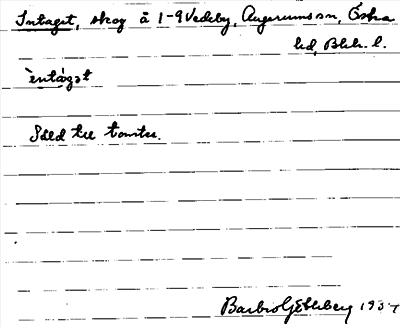 Intaget, skog å 1-9 Vedeby, Augerums sn, Östra
hd, Blek. l.
ìntàgət
Såld till tomter.
Barbro Göthberg 1937